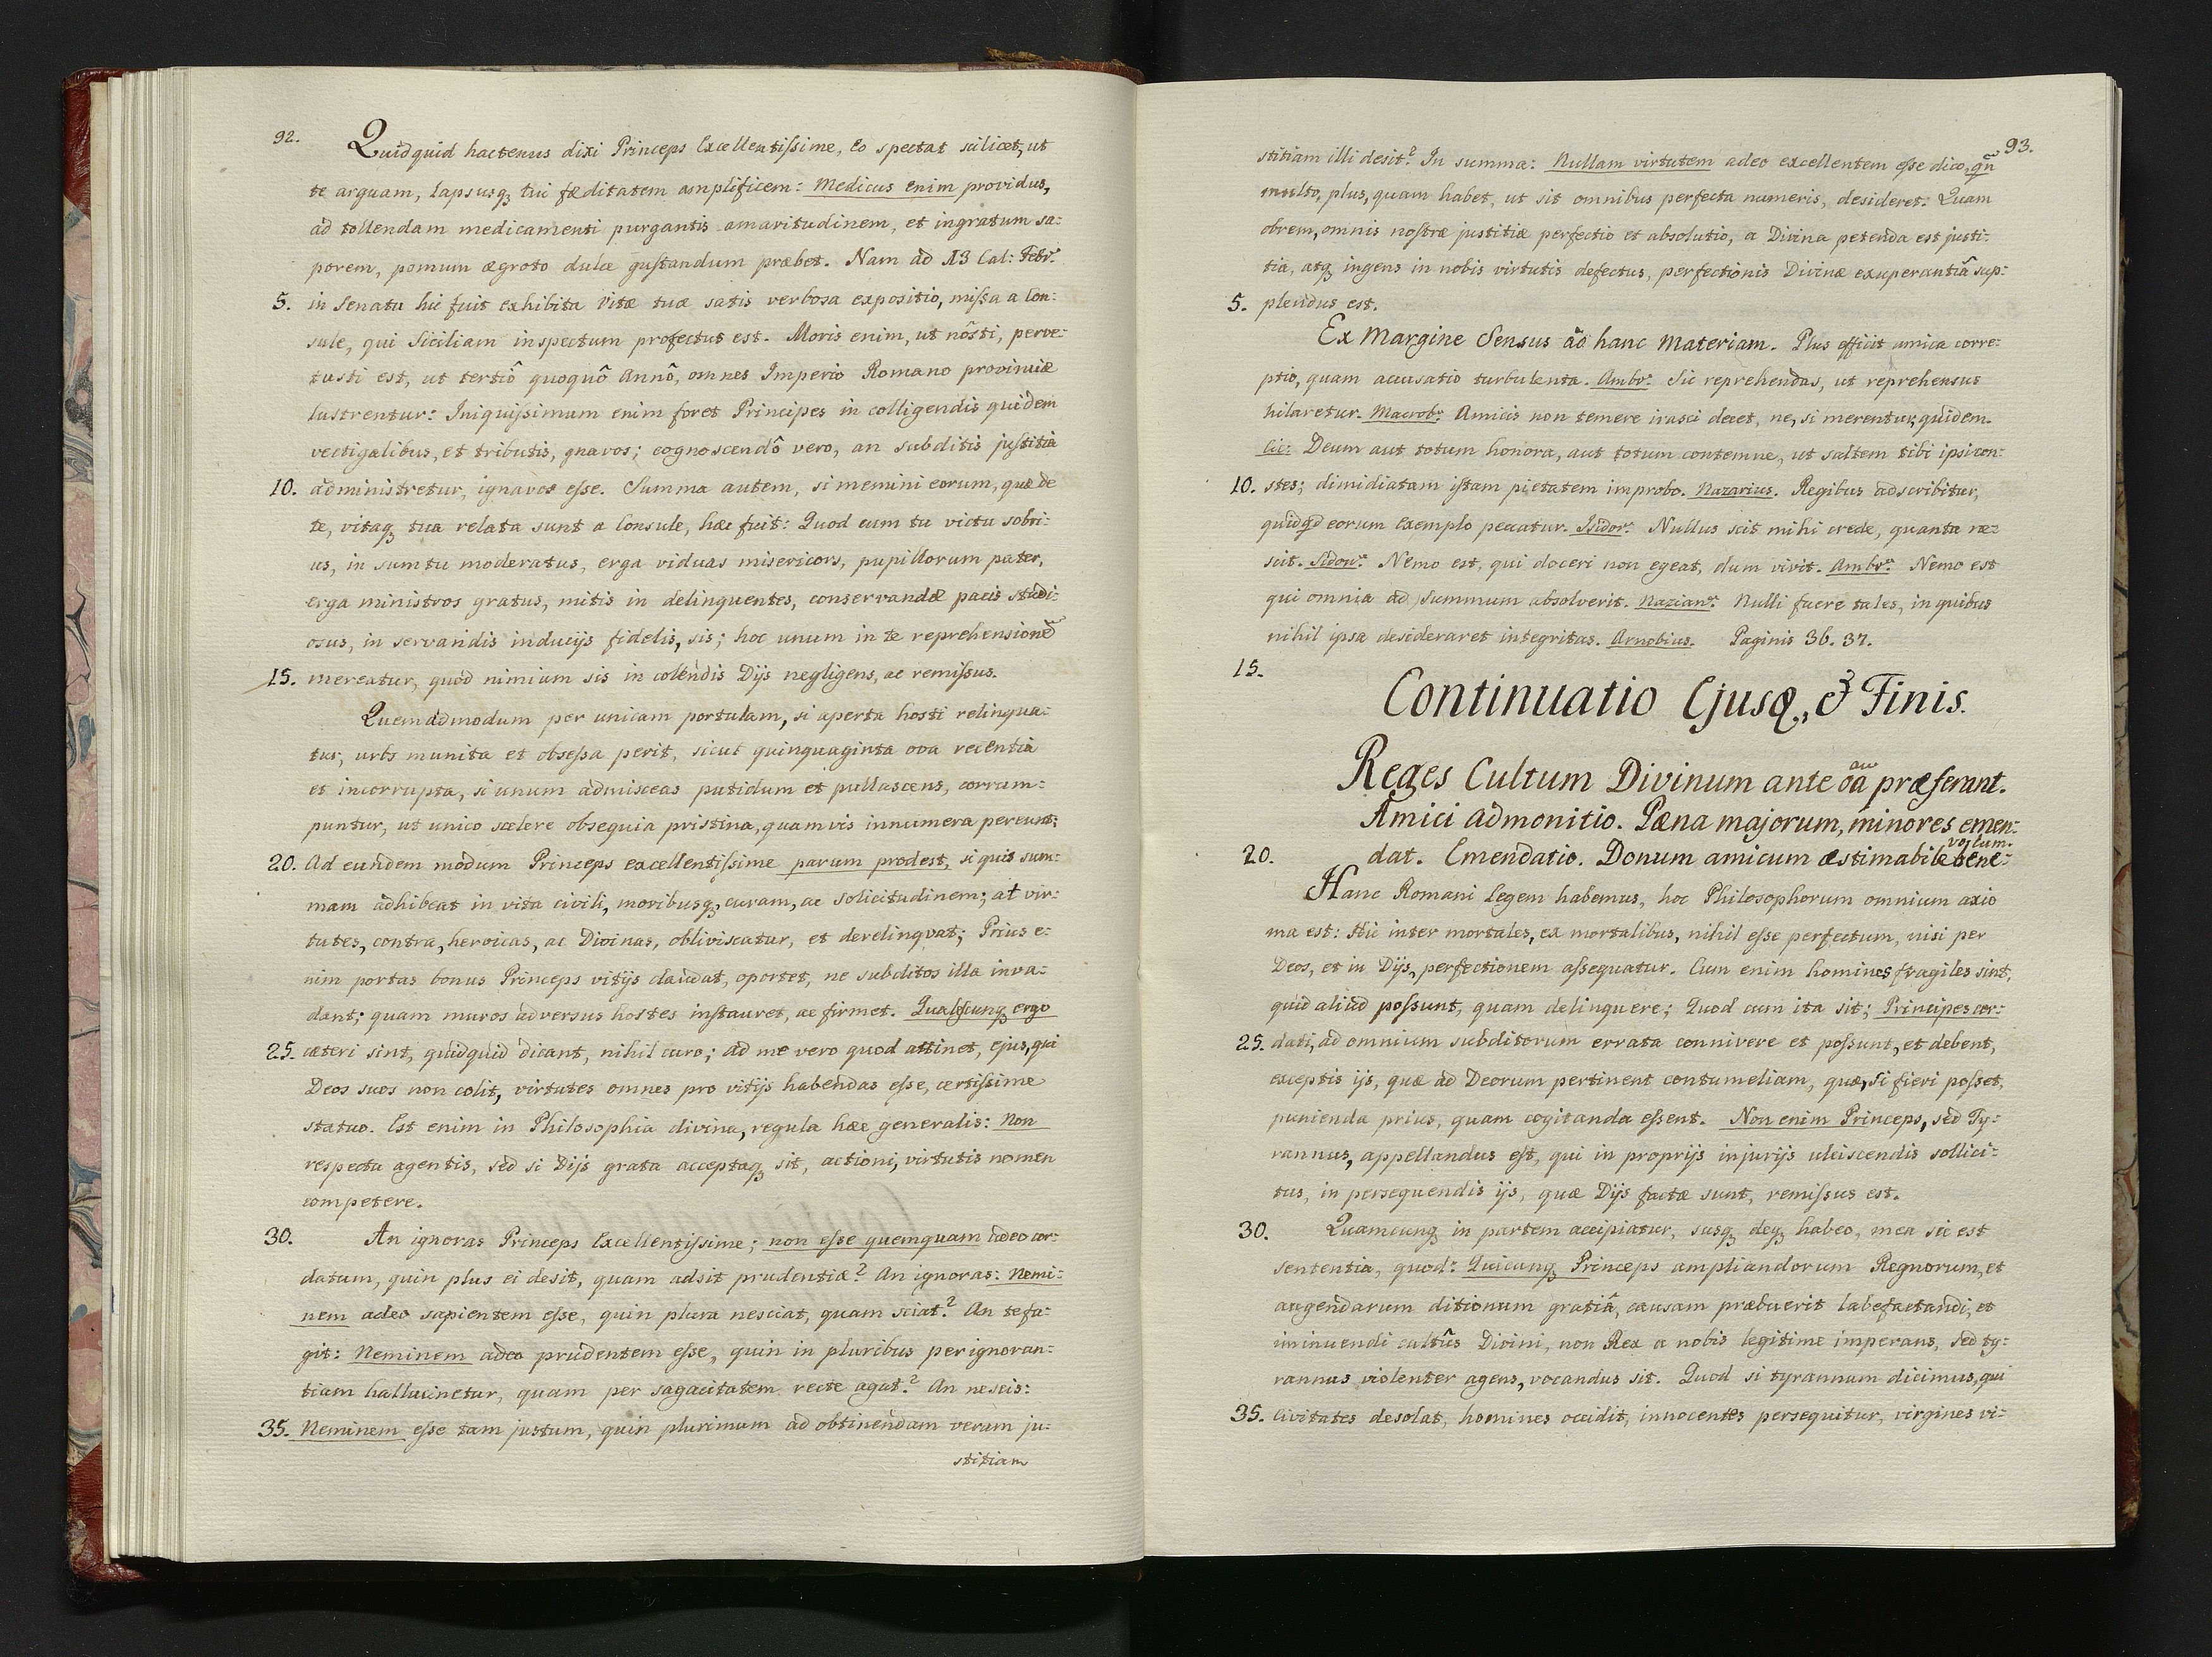 92.
Quidquid hactenus dixi Princeps Excellentiſsime, Eo spectat scilicet, ut
te arguam, lapsusqꝫ tui fæditatem amplificem: Medicus enim providus,
ad tollendam medicamenti purgantis amaritudinem, et ingratum sa:
porem, pomum ægroto dulce guſtandum præbet. Nam ad 13 Cal: Febr.
5. in Senatu hic fuit exhibita Vitæ tuæ satis verbosa expositio, miſsa a Con:
sule, qui Siciliam inspectum profectus est. Moris enim, ut nôsti, perve:
tusti est, ut tertiô quoquô Annô, omnes Imperio Romano provinciæ
lustrentur: Iniquiſsimum enim foret Principes in colligendis quidem
vectigalibus, et tributis, gnavos; cognoscendô vero, an subditis juſtitia
10. administretur, ignavos eſse. Summa autem, si memini eorum, quæ de
te, vitaqꝫ tua relata sunt a Consule, hæc fuit: Quod cum tu victu sobri:
us, in sumtu moderatus, erga viduas misericors, pupillorum pater,
erga ministros gratus, mitis in delinquentes, conservandæ pacis studi:
osus, in servandis inducijs fidelis, sis; hoc unum in te reprehensionē
15. mereatur, quod nimium sis in colendis Dijs negligens, ac remiſsus.
Quemadmodum per unicam portulam, si aperta hosti relinqua:
tur, urbs munita et obseſsa perit, sicut quinquaginta ova recentia
et incorrupta, si unum admisceas putidum et pullascens, corrum:
puntur, ut unico scelere obsequia pristina, quamvis innumera pereunt;
20. Ad eundem modum Princeps excellentiſsime parum prodest, si quis sum:
mam adhibeat in vita civili, moribusqꝫ, curam, ac solicitudinem; at vir:
tutes, contra, heroicas, ac Divinas, obliviscatur, et derelinqvat; Prius e:
nim portas bonus Princeps vitijs claudat, oportet, ne subditos illa inva:
dant; quam muros adversus hostes inſtauret, ac firmet. Qualeſcunqꝫ ergo
25. cæteri sint, quidquid dicant, nihil curo; ad me vero quod attinet, ejus, qui
Deos suos non colit, virtutes omnes pro vitijs habendas eſse, certiſsime
statuo. Est enim in Philosophia divina, regula hæc generalis: Non
respectu agentis, sed si Dijs grata acceptaqꝫ sit, actioni, virtutis nomen
competere.
30. An ignoras Princeps Excellentiſsime; non eſse quemquam adeo cor:
datum, quin plus ei desit, quam adsit prudentiæ? An ignoras: Nemi:
nem adeo sapientem eſse, quin plura nesciat, quam sciat? An te fu:
git: Neminem adeo prudentem eſse, quin in pluribus per ignoran:
tiam hallucinetur, quam per sagacitatem recte agat? An nescis:
35. Neminem eſse tam justum, quin plurimum ad obtinendam veram ju:
stitiam
93.
stitiam illi desit? In summa: Nullam virtutem adeo excellentem eſse dico, qn̄
multo, plus, quam habet, ut sit omnibus perfecta numeris, desideret: Quam
obrem, omnis noſtræ justitiæ perfectio et absolutio, a Divina petenda est justi:
tia, atqꝫ ingens in nobis virtutis defectus, perfectionis Divinæ exuperantiâ sup:
5. plendus est.
Ex Margine Sensus ad hanc Materiam. Plus efficit amica corre:
ptio, quam accusatio turbulenta. Ambr: Sic reprehendas, ut reprehensus
hilaretur. Macrob: Amicis non temere irasci decet, ne, si merentur, quidem.
Cic: Deum aut totum honora, aut totum contemne, ut saltem tibi ipsi con:
10. stes; dimidiatam iſtam pietatem improbo. Nazarius. Regibus adscribitur,
quidqd eorum exemplo peccatur. Isidor: Nullus scit mihi crede, quanta ne:
scit. Sidon: Nemo est, qui doceri non egeat, dum vivit. Ambr: Nemo est
qui omnia ad summum absolverit. Nazian: Nulli fuere tales, in quibus
nihil ipsa desideraret integritas. Arnobius. Paginis 36. 37.
15.
Continuatio Ejusq, & Finis.
Reges Cultum Divinum ante oā præferant.
Amici Admonitio. Pæna majorum, minores emen:
20. dat. Emendatio. Donum amicum æstimabile bene:
volum.
Hanc Romani Legem habemus, hoc Philosophorum omnium axio
ma est: Hic inter mortales, ex mortalibus, nihil eſse perfectum, nisi per
Deos, et in Dijs, perfectionem aſsequatur. Cum enim homines fragiles sint,
quid aliud poſsunt, quam delinquere; Quod cum ita sit; Principes cor:
25. dati, ad omnium subditorum errata connivere et poſsunt, et debent,
exceptis ijs, quæ ad Deorum pertinent contumeliam, quæ, si fieri poſset,
punienda prius, quam cogitanda eſsent. Non enim Princeps, sed Ty:
rannus, appellandus eſt, qui in proprijs injurijs ulciscendis sollici:
tus, in persequendis ijs, quæ Dijs factæ sunt, remiſsus est.
30. Quamcunqꝫ in partem accipiatur, susqꝫ deqꝫ habeo, mea sic est
sententia, quod: Quicunqꝫ Princeps ampliandorum Regnorum, et
augendarum ditionum gratiâ, causam præbuerit labefactandi, et
iminuendi cultûs Divini, non Rex a nobis legitime imperans, sed ty:
rannus violenter agens, vocandus sit. Quod si tyrannum dicimus, qui
35. Civitates desolat, homines occidit, innocentes persequitur, virgines vi: